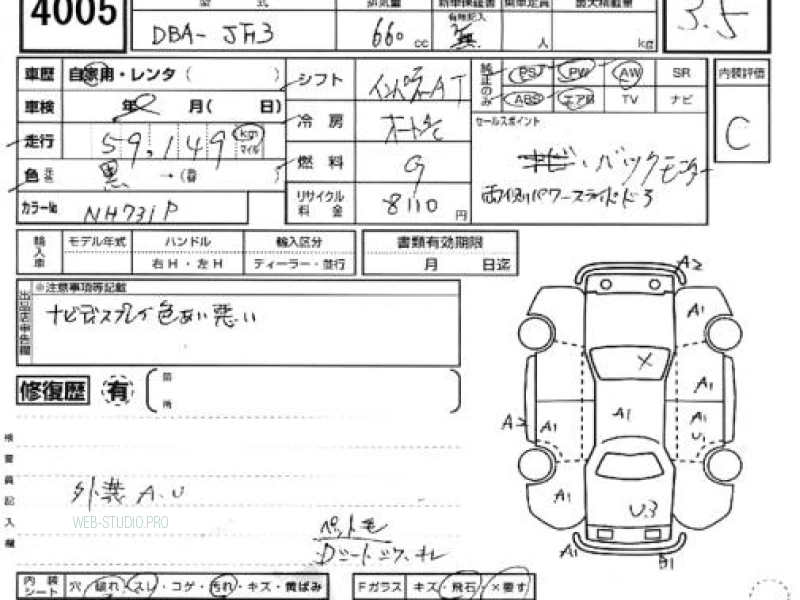 4005
型式 排気量 新車保証書 乗車定員 最大積載量
DBA- JF3 660 cc 有無記入 人 kg
3.5
車歴 自家用・レンタ( )
車検 年 月( 日)
走行 59,149 km マイル
色 黒 →( )
カラーNo NH731P
シフト インパネAT
冷房 オートAC
燃料 G
リサイクル料金 8110 円
純正のみ PS PW AW SR
ABS エアB TV ナビ
セールスポイント
ナビ・バックモニター
両側パワースライドドア
内装評価
C
輸入車 モデル年式 ハンドル 輸入区分
右H・左H ディーラー・並行
書類有効期限
月 日迄
出品店申告欄
※注意事項等記載
ナビディスプレイ色あい悪い
修復歴 有 箇所
検査員記入欄
外装 A.U
WEB-STUDIO.PRO
内装シート 穴・破れ・スレ・コゲ・汚れ・キズ・黄ばみ
Fガラス キズ・飛石・×要す
A2
A1
X
A1
A2 A1 A1 A1
U1
A1 U3
A1 B1